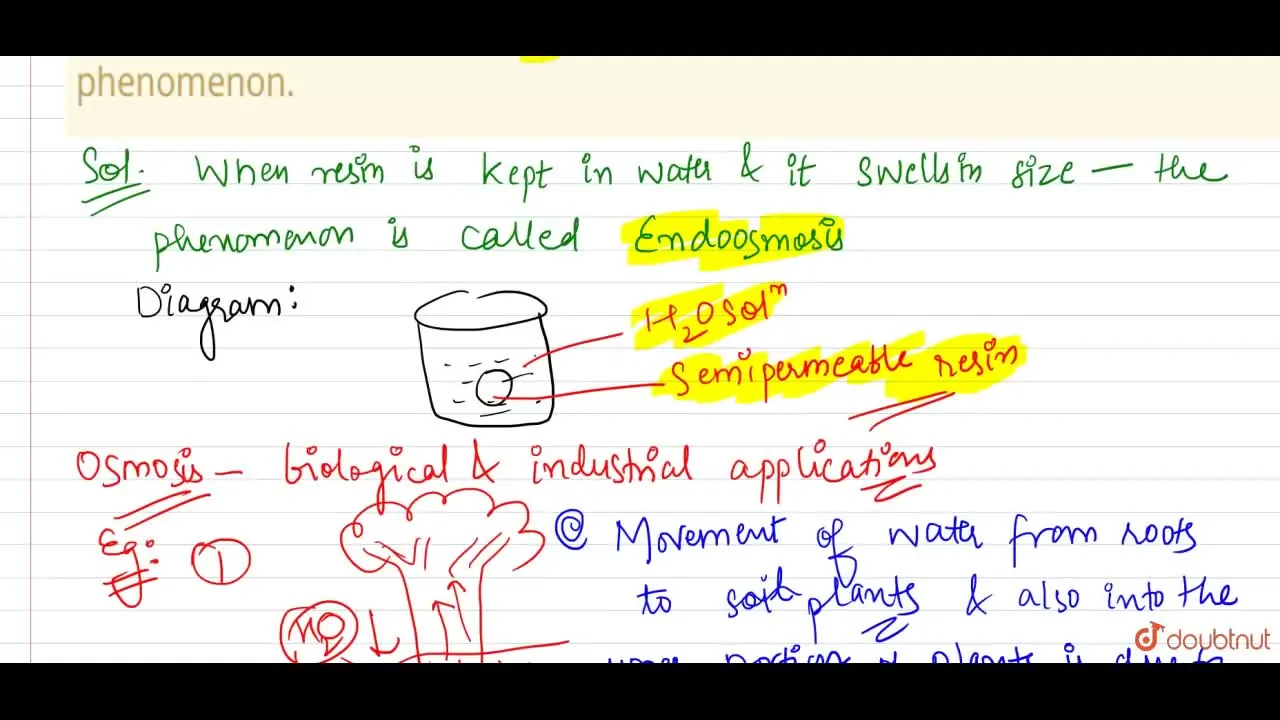 phenomenon.
Sol. When resin is kept in water & it swells in size – the
phenomenon is called Endoosmosis
Diagram:
H2O Solⁿ
Semipermeable resin
Osmosis – biological & industrial applications
Eg: ①
@ Movement of water from roots
to soil plants & also into the
doubtnut